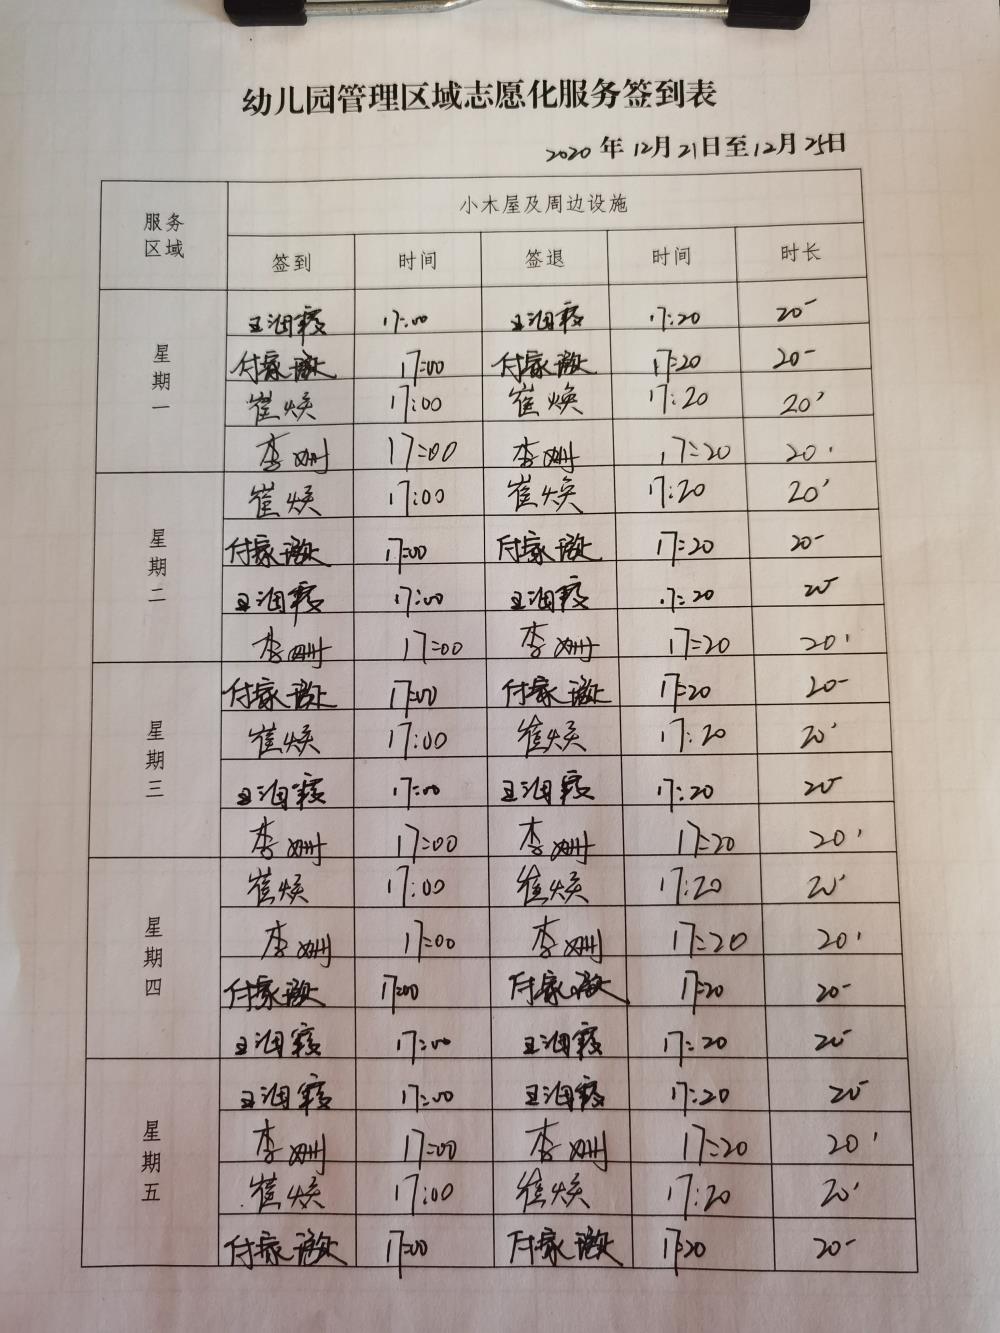 幼儿园管理区域志愿化服务签到表
2020 年 12月 21日至12月 25日
服务区域 小木屋及周边设施
签到 时间 签退 时间 时长
星期一
王海霞 17:00 王海霞 17:20 20'
付家 17:00 付家 17:20 20'
崔焕 17:00 崔焕 17:20 20'
李姗 17:00 李姗 17:20 20'
星期二
崔焕 17:00 崔焕 17:20 20'
付家 17:00 付家 17:20 20'
王海霞 17:00 王海霞 17:20 20'
李姗 17:00 李姗 17:20 20'
星期三
付家 17:00 付家 17:20 20'
崔焕 17:00 崔焕 17:20 20'
王海霞 17:00 王海霞 17:20 20'
李姗 17:00 李姗 17:20 20'
星期四
崔焕 17:00 崔焕 17:20 20'
李姗 17:00 李姗 17:20 20'
付家 17:00 付家 17:20 20'
王海霞 17:00 王海霞 17:20 20'
星期五
王海霞 17:00 王海霞 17:20 20'
李姗 17:00 李姗 17:20 20'
崔焕 17:00 崔焕 17:20 20'
付家 17:00 付家 17:20 20'